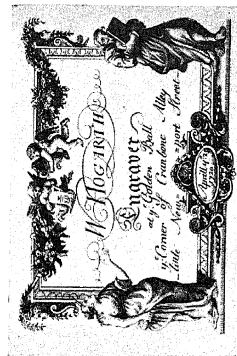 W. HOGARTH
Engraver
at yᵉ Golden Ball
yᵉ Corner of Cranborne Alley
little Newport Street
Aprill yᵉ 23
1720